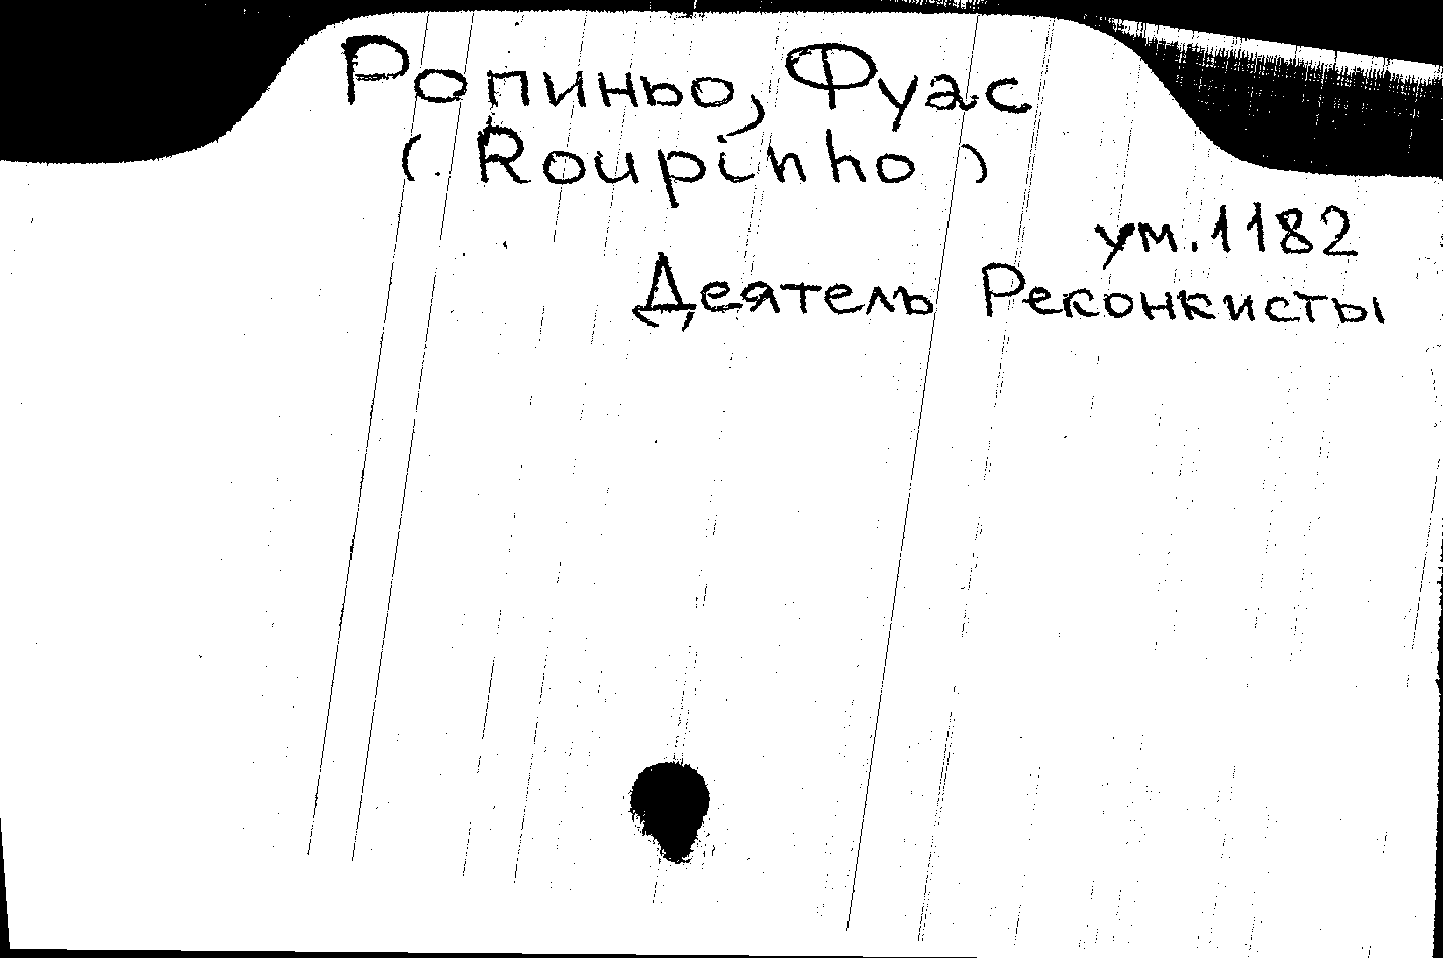 Ропиньо, Фуас
(Roupinho)
ум. 1182
Деятель Реконкисты